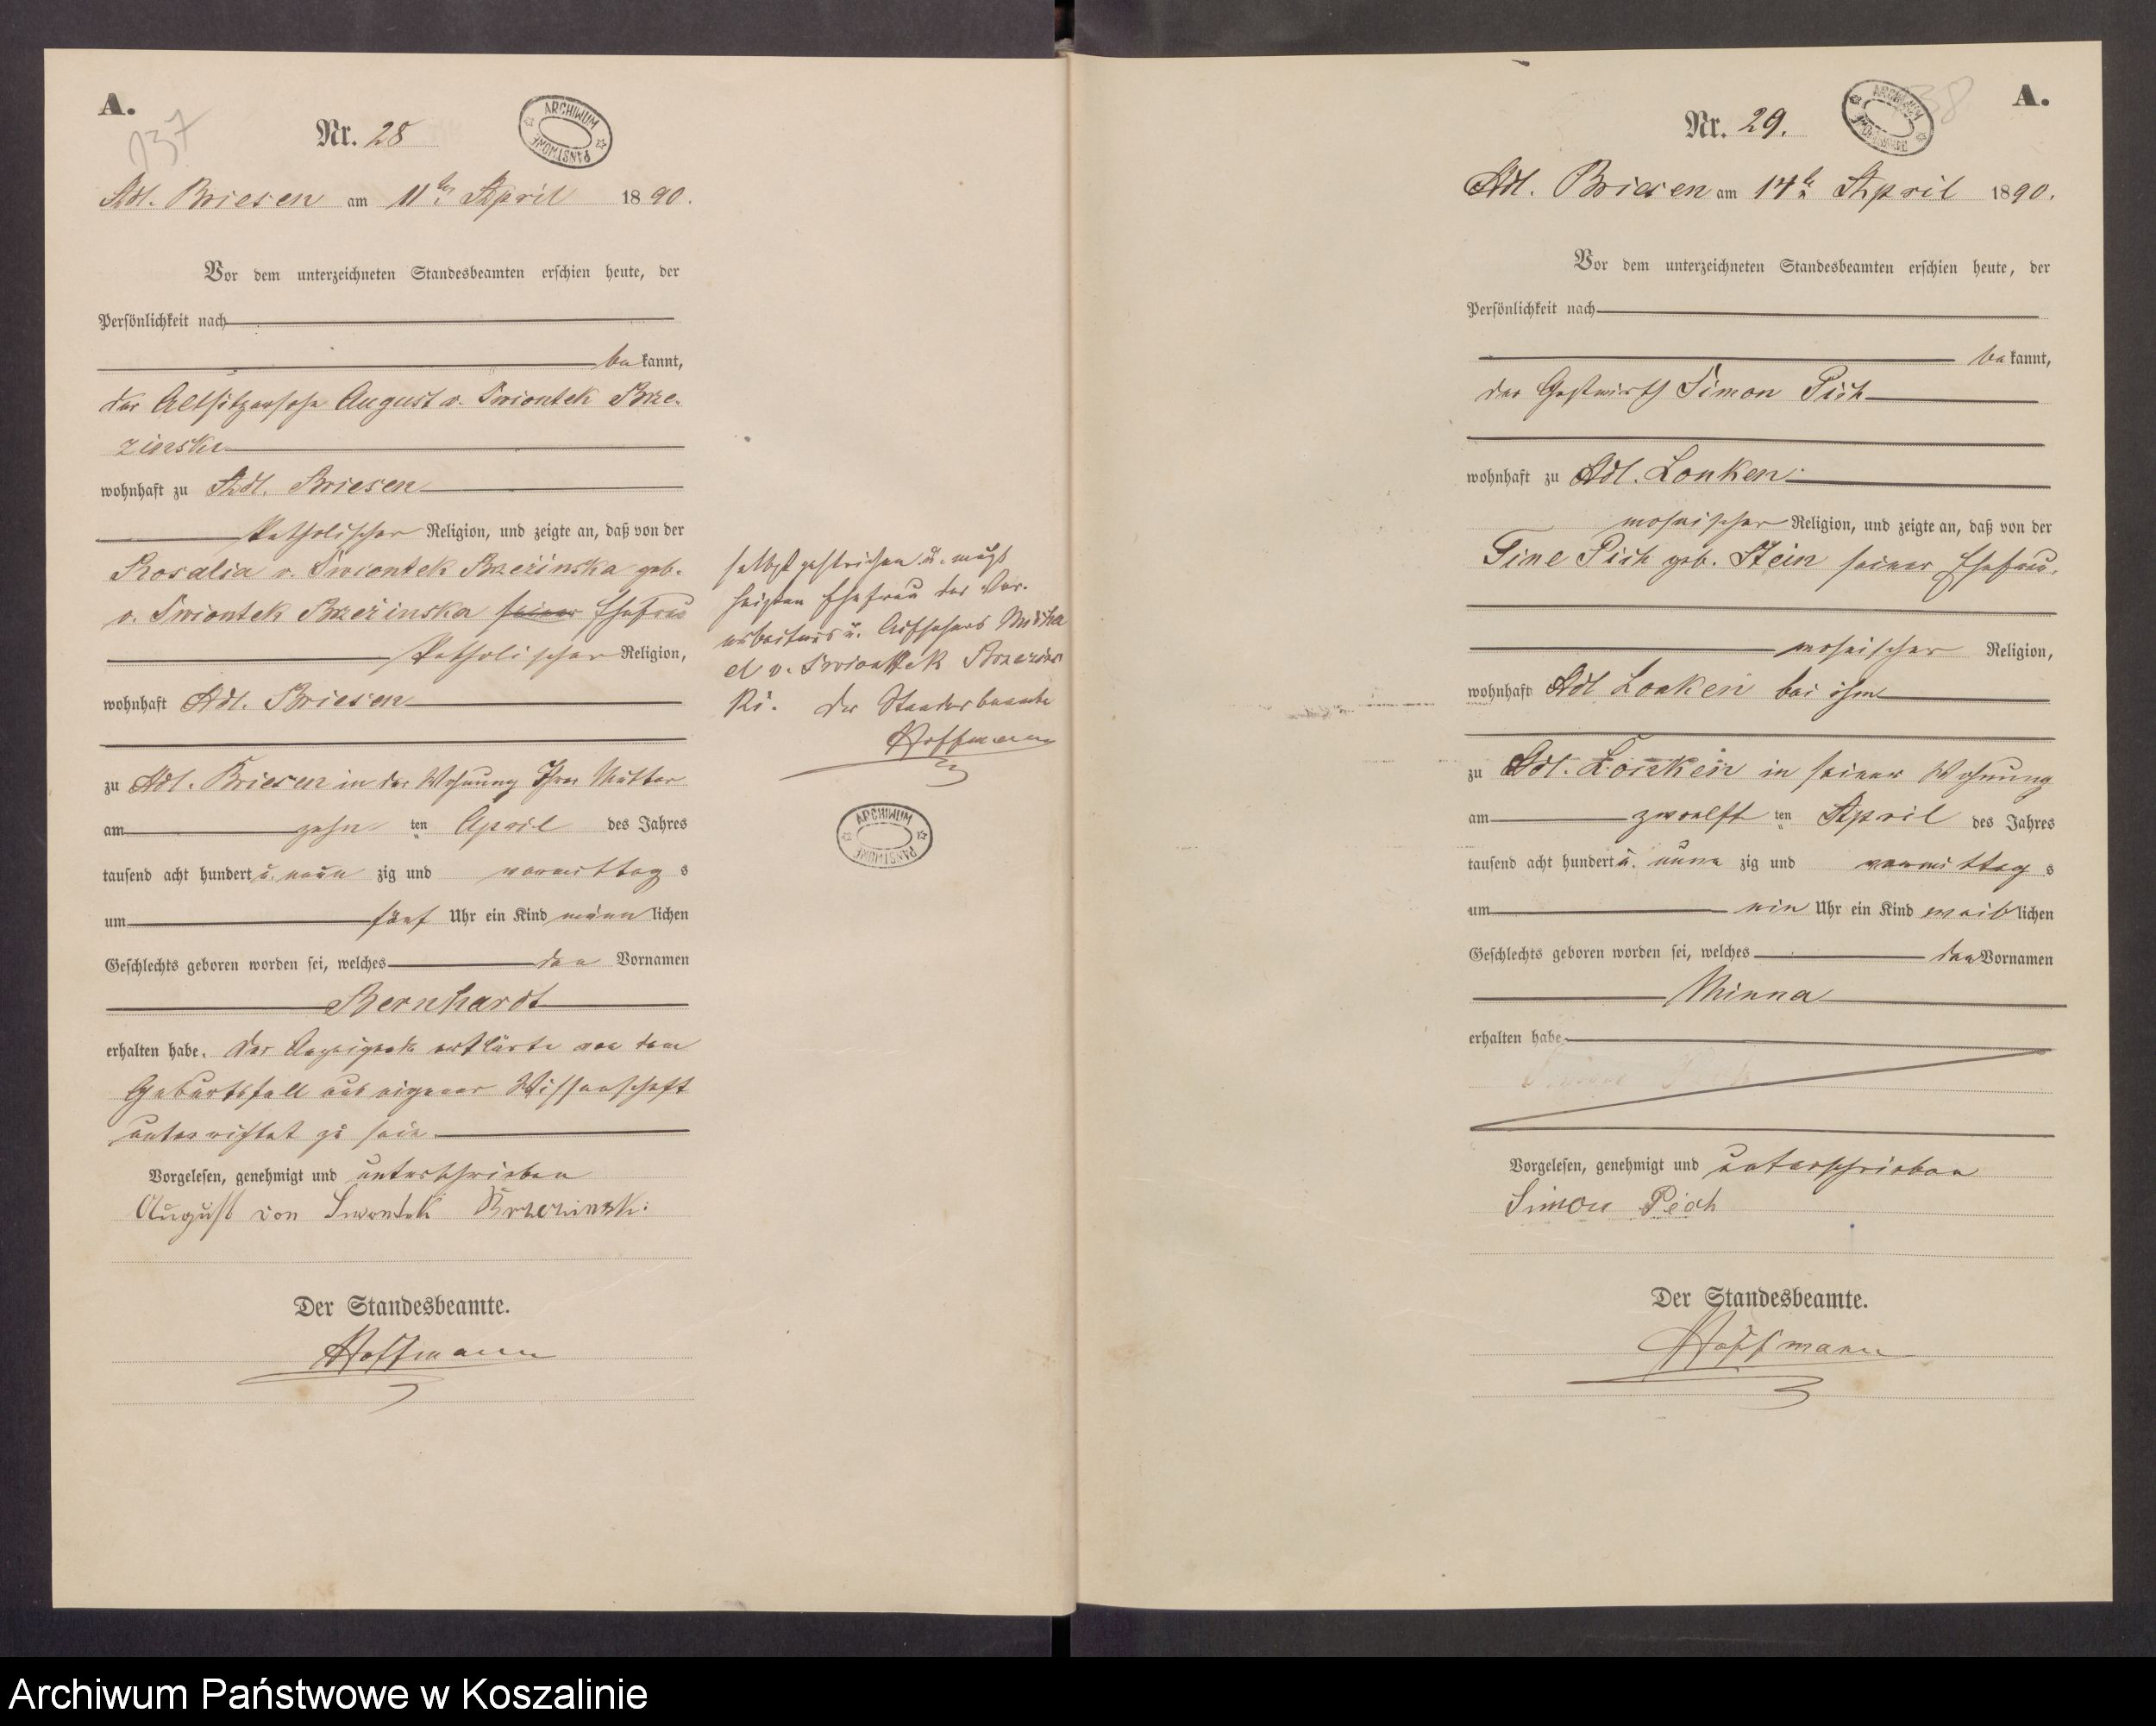 A.
137
Nr. 28
ARCHIWUM PAŃSTWOWE
Adl. Briesen am 11ten April 1890.
Vor dem unterzeichneten Standesbeamten erschien heute, der
Persönlichkeit nach
bekannt,
der Altsitzersohn August v. Swiontek Brze-
zinski
wohnhaft zu Adl. Briesen
katholischer Religion, und zeigte an, daß von der
Rosalia v. Swiontek Brzezinska geb.
v. Swiontek Brzezinska seiner Ehefrau
katholischer Religion,
wohnhaft Adl. Briesen
zu Adl. Briesen in der Wohnung Ihrer Mutter
am zehn ten April des Jahres
tausend acht hundert u. neun zig und vormittag s
um fünf Uhr ein Kind männlichen
Geschlechts geboren worden sei, welches den Vornamen
Bernhardt
erhalten habe. Der Anzeigende erklärte von dem
Geburtsfall aus eigener Wissenschaft
unterrichtet zu sein.
Vorgelesen, genehmigt und unterschrieben
August von Swontek Brzezinski
Der Standesbeamte.
Hoffmann
selbst gestrichen u.
Ehefrau des Vor-
arbeiters u. Aufsehers Micha
el v. Swiontek Brzezins
ki. Der Standesbeamte
Hoffmann
ARCHIWUM PAŃSTWOWE
A.
138
Nr. 29.
ARCHIWUM PAŃSTWOWE
Adl. Briesen am 14ten April 1890.
Vor dem unterzeichneten Standesbeamten erschien heute, der
Persönlichkeit nach
bekannt,
der Gastwirth Simon Pich
wohnhaft zu Adl. Lonken
mosaischer Religion, und zeigte an, daß von der
Tine Pich geb. Stein seiner Ehefrau,
mosaischer Religion,
wohnhaft Adl Lonken bei ihm
zu Adl. Lonken in seiner Wohnung
am zwoelft ten April des Jahres
tausend acht hundert u. neun zig und vormittag s
um ein Uhr ein Kind weiblichen
Geschlechts geboren worden sei, welches den Vornamen
Minna
erhalten habe
Vorgelesen, genehmigt und unterschrieben
Simon Pich
Der Standesbeamte.
Hoffmann
Archiwum Państwowe w Koszalinie